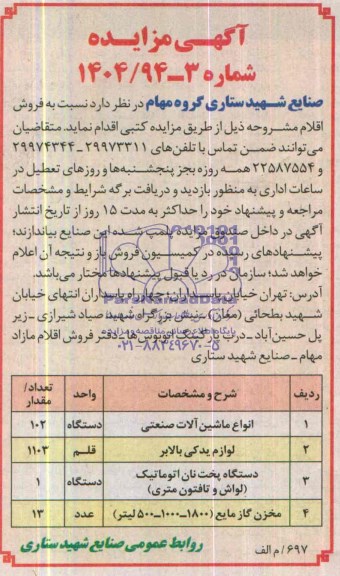 آگهی مزایده
شماره ۳-۱۴۰۴/۹۴
صنایع شهید ستاری گروه مهام در نظر دارد نسبت به فروش
اقلام مشروحه ذیل از طریق مزایده کتبی اقدام نماید. متقاضیان
می‌توانند ضمن تماس با تلفن‌های ۲۹۹۷۳۳۱۱-۲۹۹۷۴۳۴۴
و ۲۲۵۸۷۵۵۴ همه روزه بجز پنجشنبه‌ها و روزهای تعطیل در
ساعات اداری به منظور بازدید و دریافت برگه شرایط و مشخصات
مراجعه و پیشنهاد خود را حداکثر به مدت ۱۵ روز از تاریخ انتشار
آگهی در داخل صندوق مزایده پلمپ شده این صنایع بیاندازند؛
پیشنهادهای رسیده در کمیسیون فروش باز و نتیجه آن اعلام
خواهد شد؛ سازمان در رد یا قبول پیشنهادها مختار می‌باشد.
آدرس: تهران خیابان پاسداران؛ چهارراه پاسداران انتهای خیابان
شهید بطحائی (مغان) - نبش بزرگراه شهید صیاد شیرازی - زیر
پل حسین‌آباد - درب پارکینگ اتوبوس‌ها - دفتر فروش اقلام مازاد
مهام - صنایع شهید ستاری
پایگاه اطلاع رسانی مناقصه و مزایده
۰۲۱-۸۸۳۴۹۶۷۰-۵
ردیف شرح و مشخصات واحد تعداد/مقدار
۱ انواع ماشین آلات صنعتی دستگاه ۱۰۲
۲ لوازم یدکی بالابر قلم ۱۱۰۳
۳ دستگاه پخت نان اتوماتیک (لواش و تافتون متری) دستگاه ۱
۴ مخزن گاز مایع (۱۸۰۰-۱۰۰۰-۵۰۰ لیتر) عدد ۱۳
روابط عمومی صنایع شهید ستاری
۶۹۷/م الف